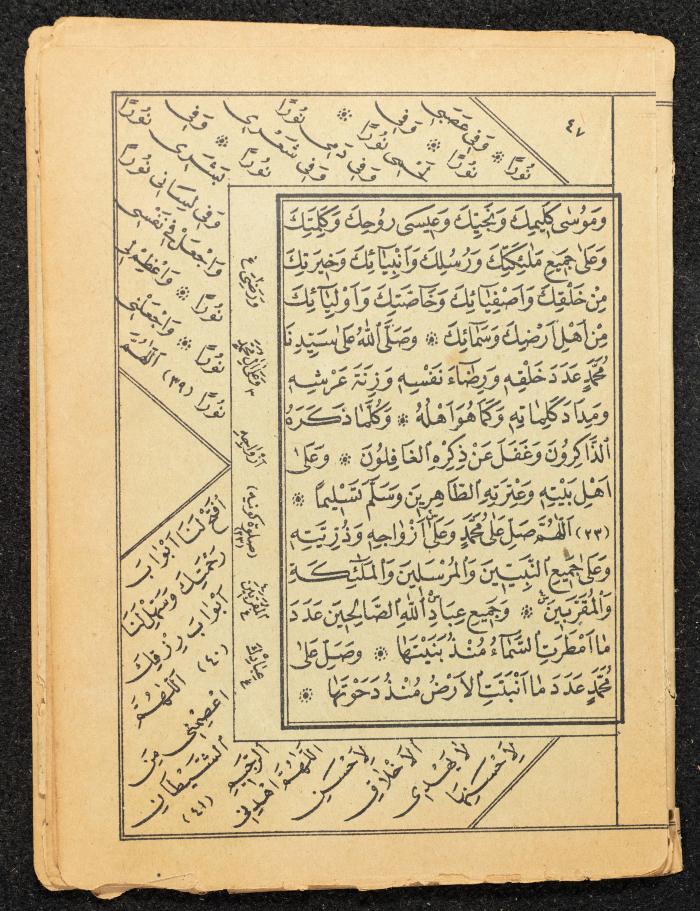 ٤٧
وَمُوسٰى كَلِيمِكَ وَنَجِيِّكَ وَعِيسَى رُوحِكَ وَكَلِمَتِكَ
وَعَلٰى جَمِيعِ مَلٰئِكَتِكَ وَرُسُلِكَ وَاَنْبِيَائِكَ وَخِيَرَتِكَ
مِنْ خَلْقِكَ وَاَصْفِيَائِكَ وَخَاصَّتِكَ وَاَوْلِيَائِكَ
مِنْ اَهْلِ اَرْضِكَ وَسَمَائِكَ ۞ وَصَلَّى اللّٰهُ عَلٰى سَيِّدِنَا
مُحَمَّدٍ عَدَدَ خَلْقِهِ وَرِضَاءَ نَفْسِهِ وَزِنَةَ عَرْشِهِ
وَمِدَادَ كَلِمَاتِهِ وَكَمَا هُوَ اَهْلُهُ ۞ وَكُلَّمَا ذَكَرَهُ
الذَّاكِرُونَ وَغَفَلَ عَنْ ذِكْرِهِ الْغَافِلُونَ ۞ وَعَلٰى
اَهْلِ بَيْتِهِ وَعِتْرَتِهِ الطَّاهِرِينَ وَسَلَّمَ تَسْلِيمًا ۞
(٢٣) اَللّٰهُمَّ صَلِّ عَلٰى مُحَمَّدٍ وَعَلٰى اَزْوَاجِهِ وَذُرِّيَّتِهِ
وَعَلٰى جَمِيعِ النَّبِيِّينَ وَالْمُرْسَلِينَ وَالْمَلٰئِكَةِ
وَالْمُقَرَّبِينَ ۞ وَجَمِيعِ عِبَادِ اللّٰهِ الصَّالِحِينَ عَدَدَ
مَا اَمْطَرَتِ السَّمَاءُ مُنْذُ بَنَيْتَهَا ۞ وَصَلِّ عَلٰى
مُحَمَّدٍ عَدَدَ مَا اَنْبَتَتِ الْاَرْضُ مُنْذُ دَحَوْتَهَا ۞
(صلوة كونيه)
(٢٣)
نُورًا ۞ وَفِي عَصَبِي
نُورًا ۞ وَفِي
لَحْمِي نُورًا ۞
وَفِي دَمِي نُورًا
۞ وَفِي شَعْرِي
نُورًا ۞ وَفِي
بَشَرِي نُورًا
وَفِي لِسَانِي نُورًا
وَاجْعَلْ فِي نَفْسِي
نُورًا ۞ وَاَعْظِمْ لِي
نُورًا ۞ وَاجْعَلْنِي
نُورًا (٣٩) اَللّٰهُمَّ
افْتَحْ لَنَا اَبْوَابَ
رَحْمَتِكَ وَسَهِّلْ لَنَا
اَبْوَابَ رِزْقِكَ
(٤٠) اَللّٰهُمَّ
اعْصِمْنِي مِنَ
الشَّيْطَانِ
الرَّجِيمِ (٤١)
اَللّٰهُمَّ اهْدِنِي
لِاَحْسَنِ
الْاَخْلَاقِ
لَا يَهْدِي
لِاَحْسَنِهَا